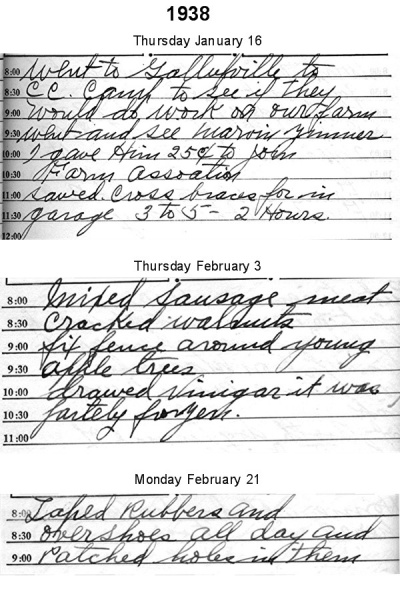 1938
Thursday January 16
8:00 Went to Gallupville to
8:30 C.C. Camp to see if they
9:00 would do work on our farm
9:30 went and see Marvin Zimmer
10:00 I gave Him 25¢ to join
10:30 Farm Assoation
11:00 sawed cross braces for in
11:30 garage 3 to 5 - 2 Hours.
12:00
Thursday February 3
8:00 mixed sausage meat
8:30 Cracked walnuts
9:00 fix fence around young
9:30 apple trees
10:00 drawed vinigar it was
10:30 partely frozen.
11:00
Monday February 21
8:00 Taped Rubbers and
8:30 overshoes all day and
9:00 Patched holes in them